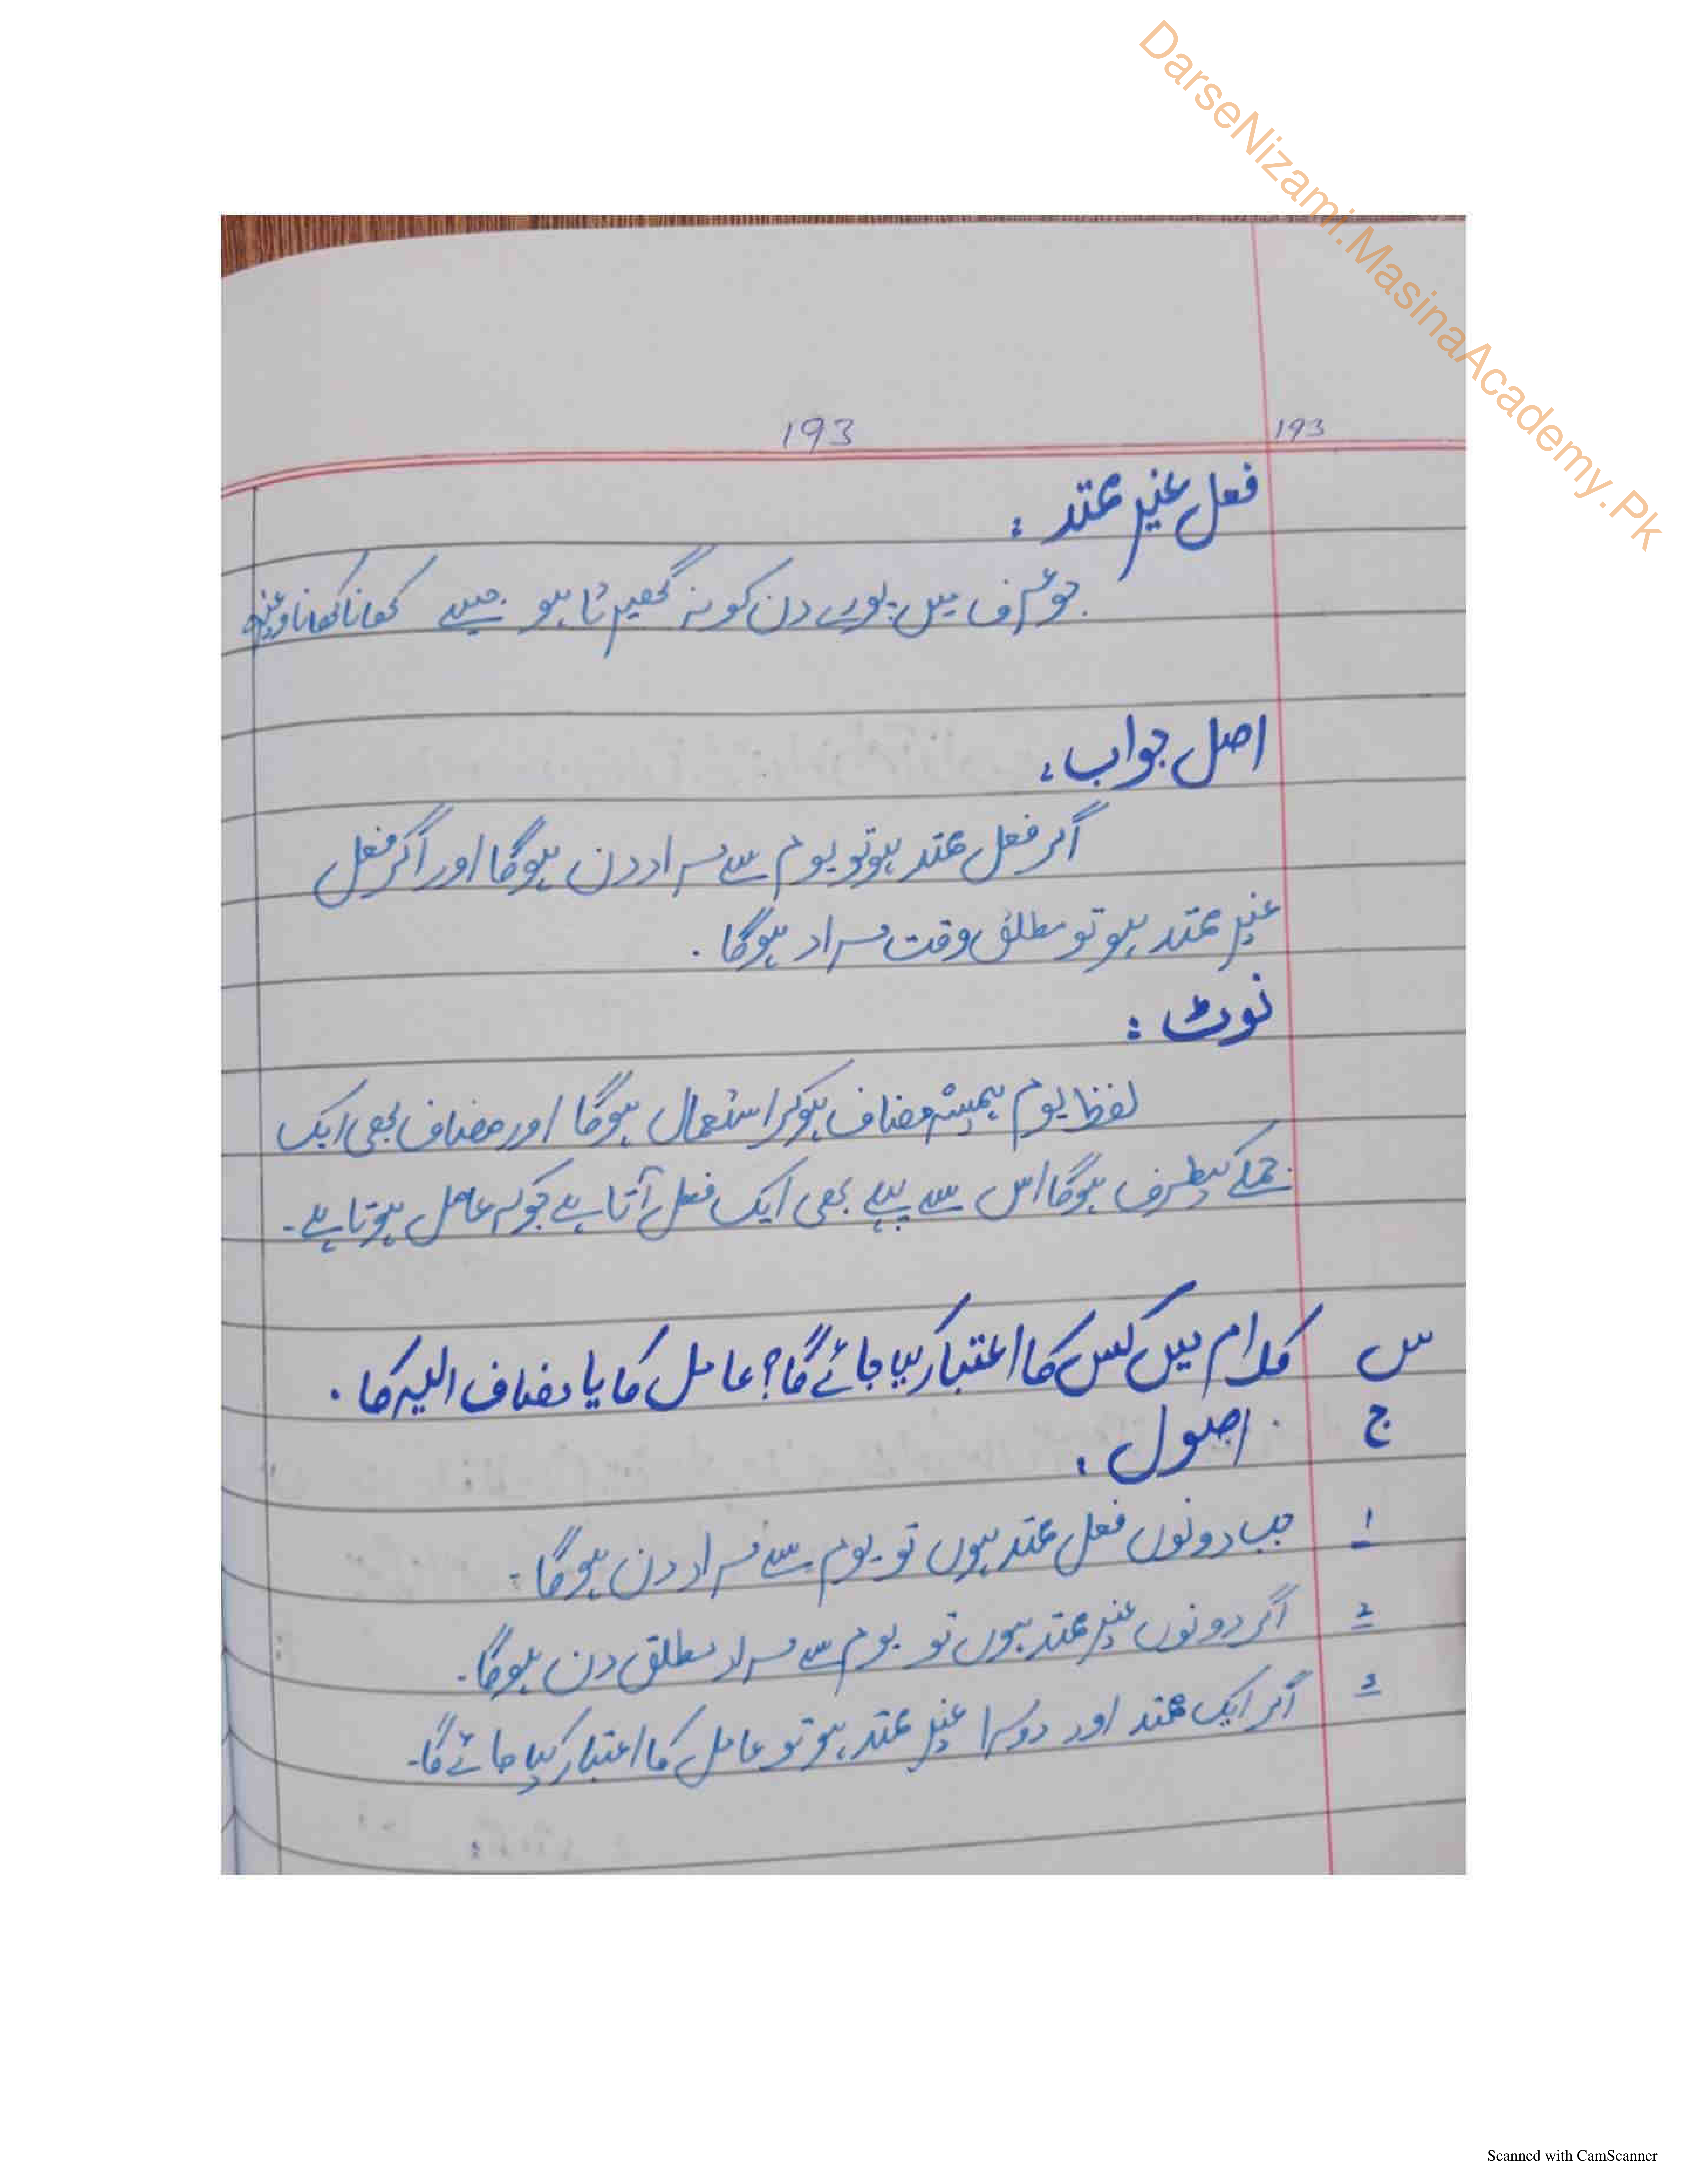 DarseNizami.MasinaAcademy.Pk
193 193
فعل غیر ممتد :
جو عرف میں پورے دن کو نہ گھیرتا ہو جیسے کھانا کھانا وغیرہ
اصل جواب :
اگر فعل ممتد ہو تو یوم سے مراد دن ہوگا اور اگر فعل
غیر ممتد ہو تو مطلق وقت مراد ہوگا ۔
نوٹ :
لفظ یوم ہمیشہ مضاف ہو کر استعمال ہوگا اور مضاف بھی ایک
جملے کیطرف ہوگا اس سے پہلے بھی ایک فعل آتا ہے جو کہ عامل ہوتا ہے ۔
س کلام میں کس کا اعتبار کیا جائے گا؟ عامل کا یا مضاف الیہ کا ۔
ج اصول :
1 جب دونوں فعل ممتد ہوں تو یوم سے مراد دن ہوگا ۔
2 اگر دونوں غیر ممتد ہوں تو یوم سے مراد مطلق دن ہوگا ۔
3 اگر ایک ممتد اور دوسرا غیر ممتد ہو تو عامل کا اعتبار کیا جائے گا ۔
Scanned with CamScanner